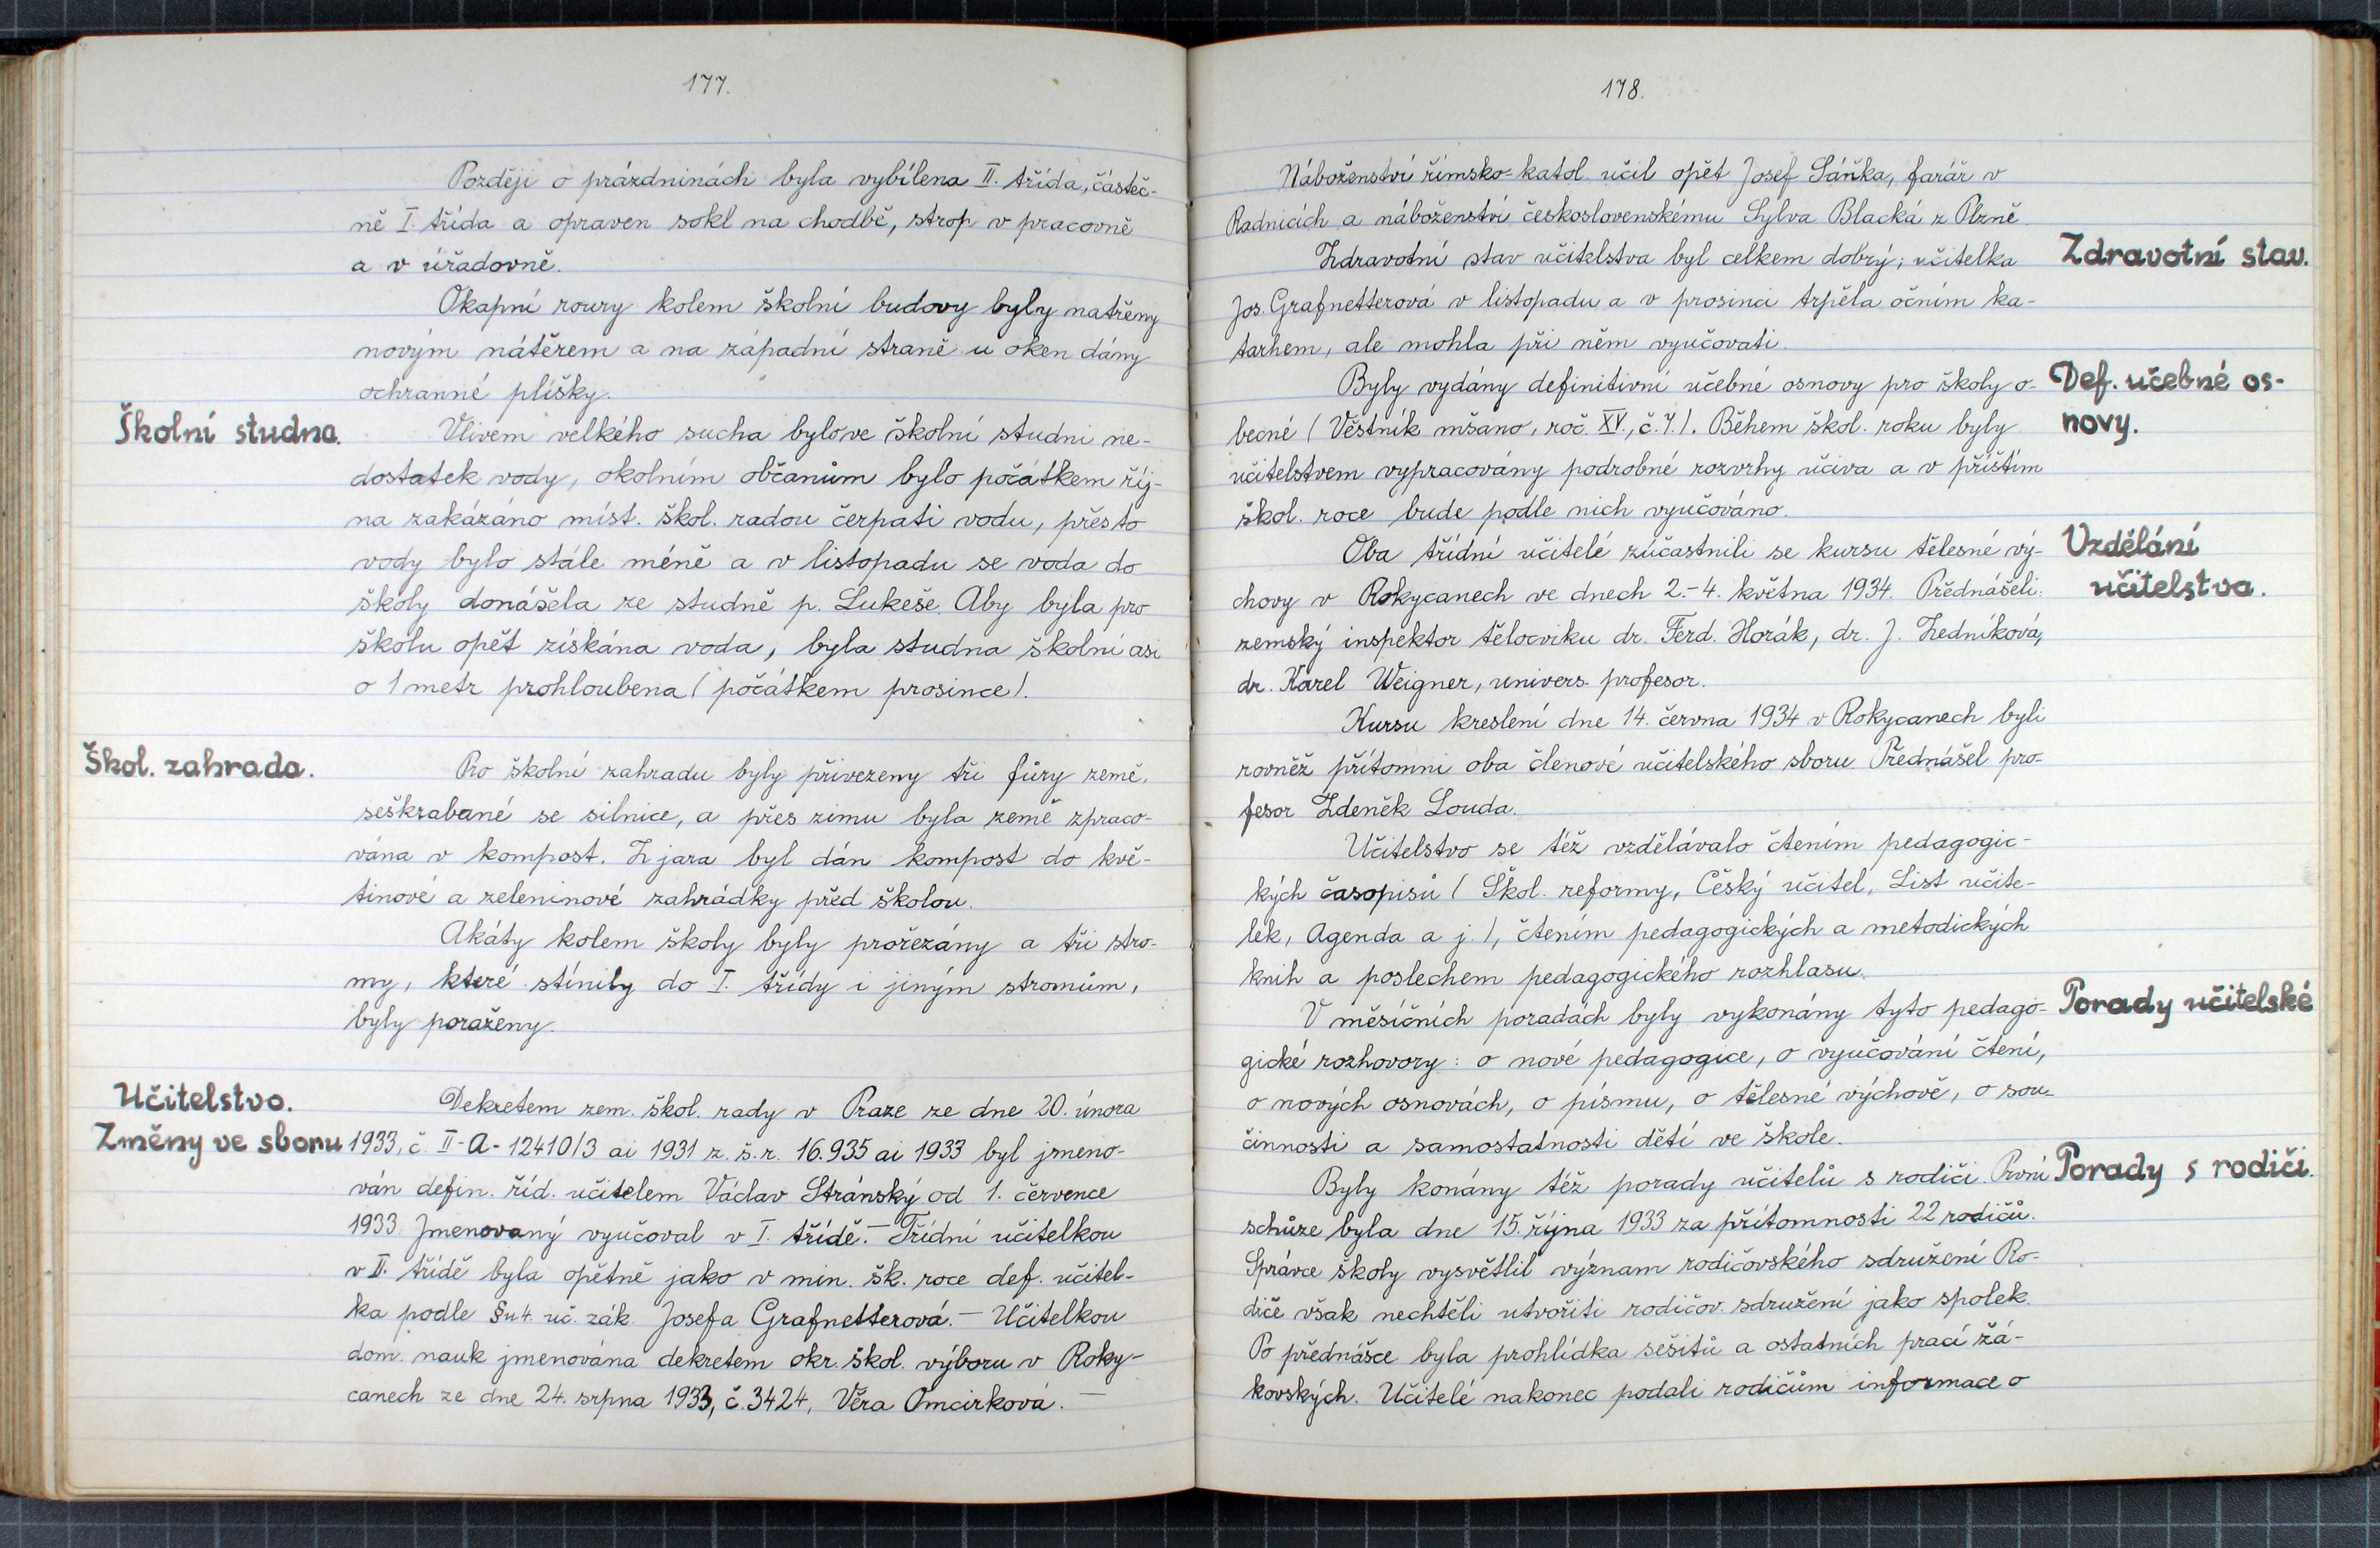 177.
Později o prázdninách byla vybílena II. třída, částeč-
ně I. třída a opraven sokl na chodbě, strop v pracovně
a v úřadovně.
Okapní roury kolem školní budovy byly natřeny
novým nátěrem a na západní straně u oken dány
ochranné plíšky.
Školní studna.
Vlivem velkého sucha bylo ve školní studni ne-
dostatek vody, okolním občanům bylo počátkem říj-
na zakázáno míst. škol. radou čerpati vodu, přesto
vody bylo stále méně a v listopadu se voda do
školy donášela ze studně p. Lukeše. Aby byla pro
školu opět získána voda, byla studna školní asi
o 1 metr prohloubena (počátkem prosince).
Škol. zahrada.
Pro školní zahradu byly přivezeny tři fůry země,
seškrabané se silnice, a přes zimu byla země zpraco-
vána v kompost. Z jara byl dán kompost do kvě-
tinové a zeleninové zahrádky před školou.
Akáty kolem školy byly prořezány a tři stro-
my, které stínily do I. třídy i jiným stromům,
byly poraženy.
Učitelstvo.
Změny ve sboru
Dekretem zem. škol. rady v Praze ze dne 20. února
1933, č. II-A-12410/3 ai 1931 z. š. r. 16.935 ai 1933 byl jmeno-
ván defin. říd. učitelem Václav Stránský od 1. července
1933. Jmenovaný vyučoval v I. třídě. — Třídní učitelkou
v II. třídě byla opětně jako v min. šk. roce def. učitel-
ka podle §u 4. uč. zák. Josefa Grafnetterová. — Učitelkou
dom. nauk jmenována dekretem okr. škol. výboru v Roky-
canech ze dne 24. srpna 1933, č. 3424, Věra Omcirková. —
178.
Náboženství římsko-katol. učil opět Josef Sáňka, farář v
Radnicích a náboženství československému Sylva Blacká z Plzně.
Zdravotní stav.
Zdravotní stav učitelstva byl celkem dobrý; učitelka
Jos. Grafnetterová v listopadu a v prosinci trpěla očním ka-
tarhem, ale mohla při něm vyučovati.
Def. učebné os-
novy.
Byly vydány definitivní učebné osnovy pro školy o-
becné (Věstník mšano, roč. XV., č. 7.). Během škol. roku byly
učitelstvem vypracovány podrobné rozvrhy učiva a v příštím
škol. roce bude podle nich vyučováno.
Vzdělání
učitelstva.
Oba třídní učitelé zúčastnili se kursu tělesné vý-
chovy v Rokycanech ve dnech 2.-4. května 1934. Přednášeli:
zemský inspektor tělocviku dr. Ferd. Horák, dr. J. Zedníková,
dr. Karel Weigner, univers. profesor.
Kursu kreslení dne 14. června 1934 v Rokycanech byli
rovněž přítomni oba členové učitelského sboru. Přednášel pro-
fesor Zdeněk Louda.
Učitelstvo se též vzdělávalo čtením pedagogic-
kých časopisů (Škol. reformy, Český učitel, List učite-
lek, Agenda a j.), čtením pedagogických a metodických
knih a poslechem pedagogického rozhlasu.
Porady učitelské
V měsíčních poradách byly vykonány tyto pedago-
gické rozhovory: o nové pedagogice, o vyučování čtení,
o nových osnovách, o písmu, o tělesné výchově, o sou-
činnosti a samostatnosti dětí ve škole.
Porady s rodiči.
Byly konány též porady učitelů s rodiči. První
schůze byla dne 15. října 1933 za přítomnosti 22 rodičů.
Správce školy vysvětlil význam rodičovského sdružení. Ro-
diče však nechtěli utvořiti rodičov. sdružení jako spolek.
Po přednášce byla prohlídka sešitů a ostatních prací žá-
kovských. Učitelé nakonec podali rodičům informace o